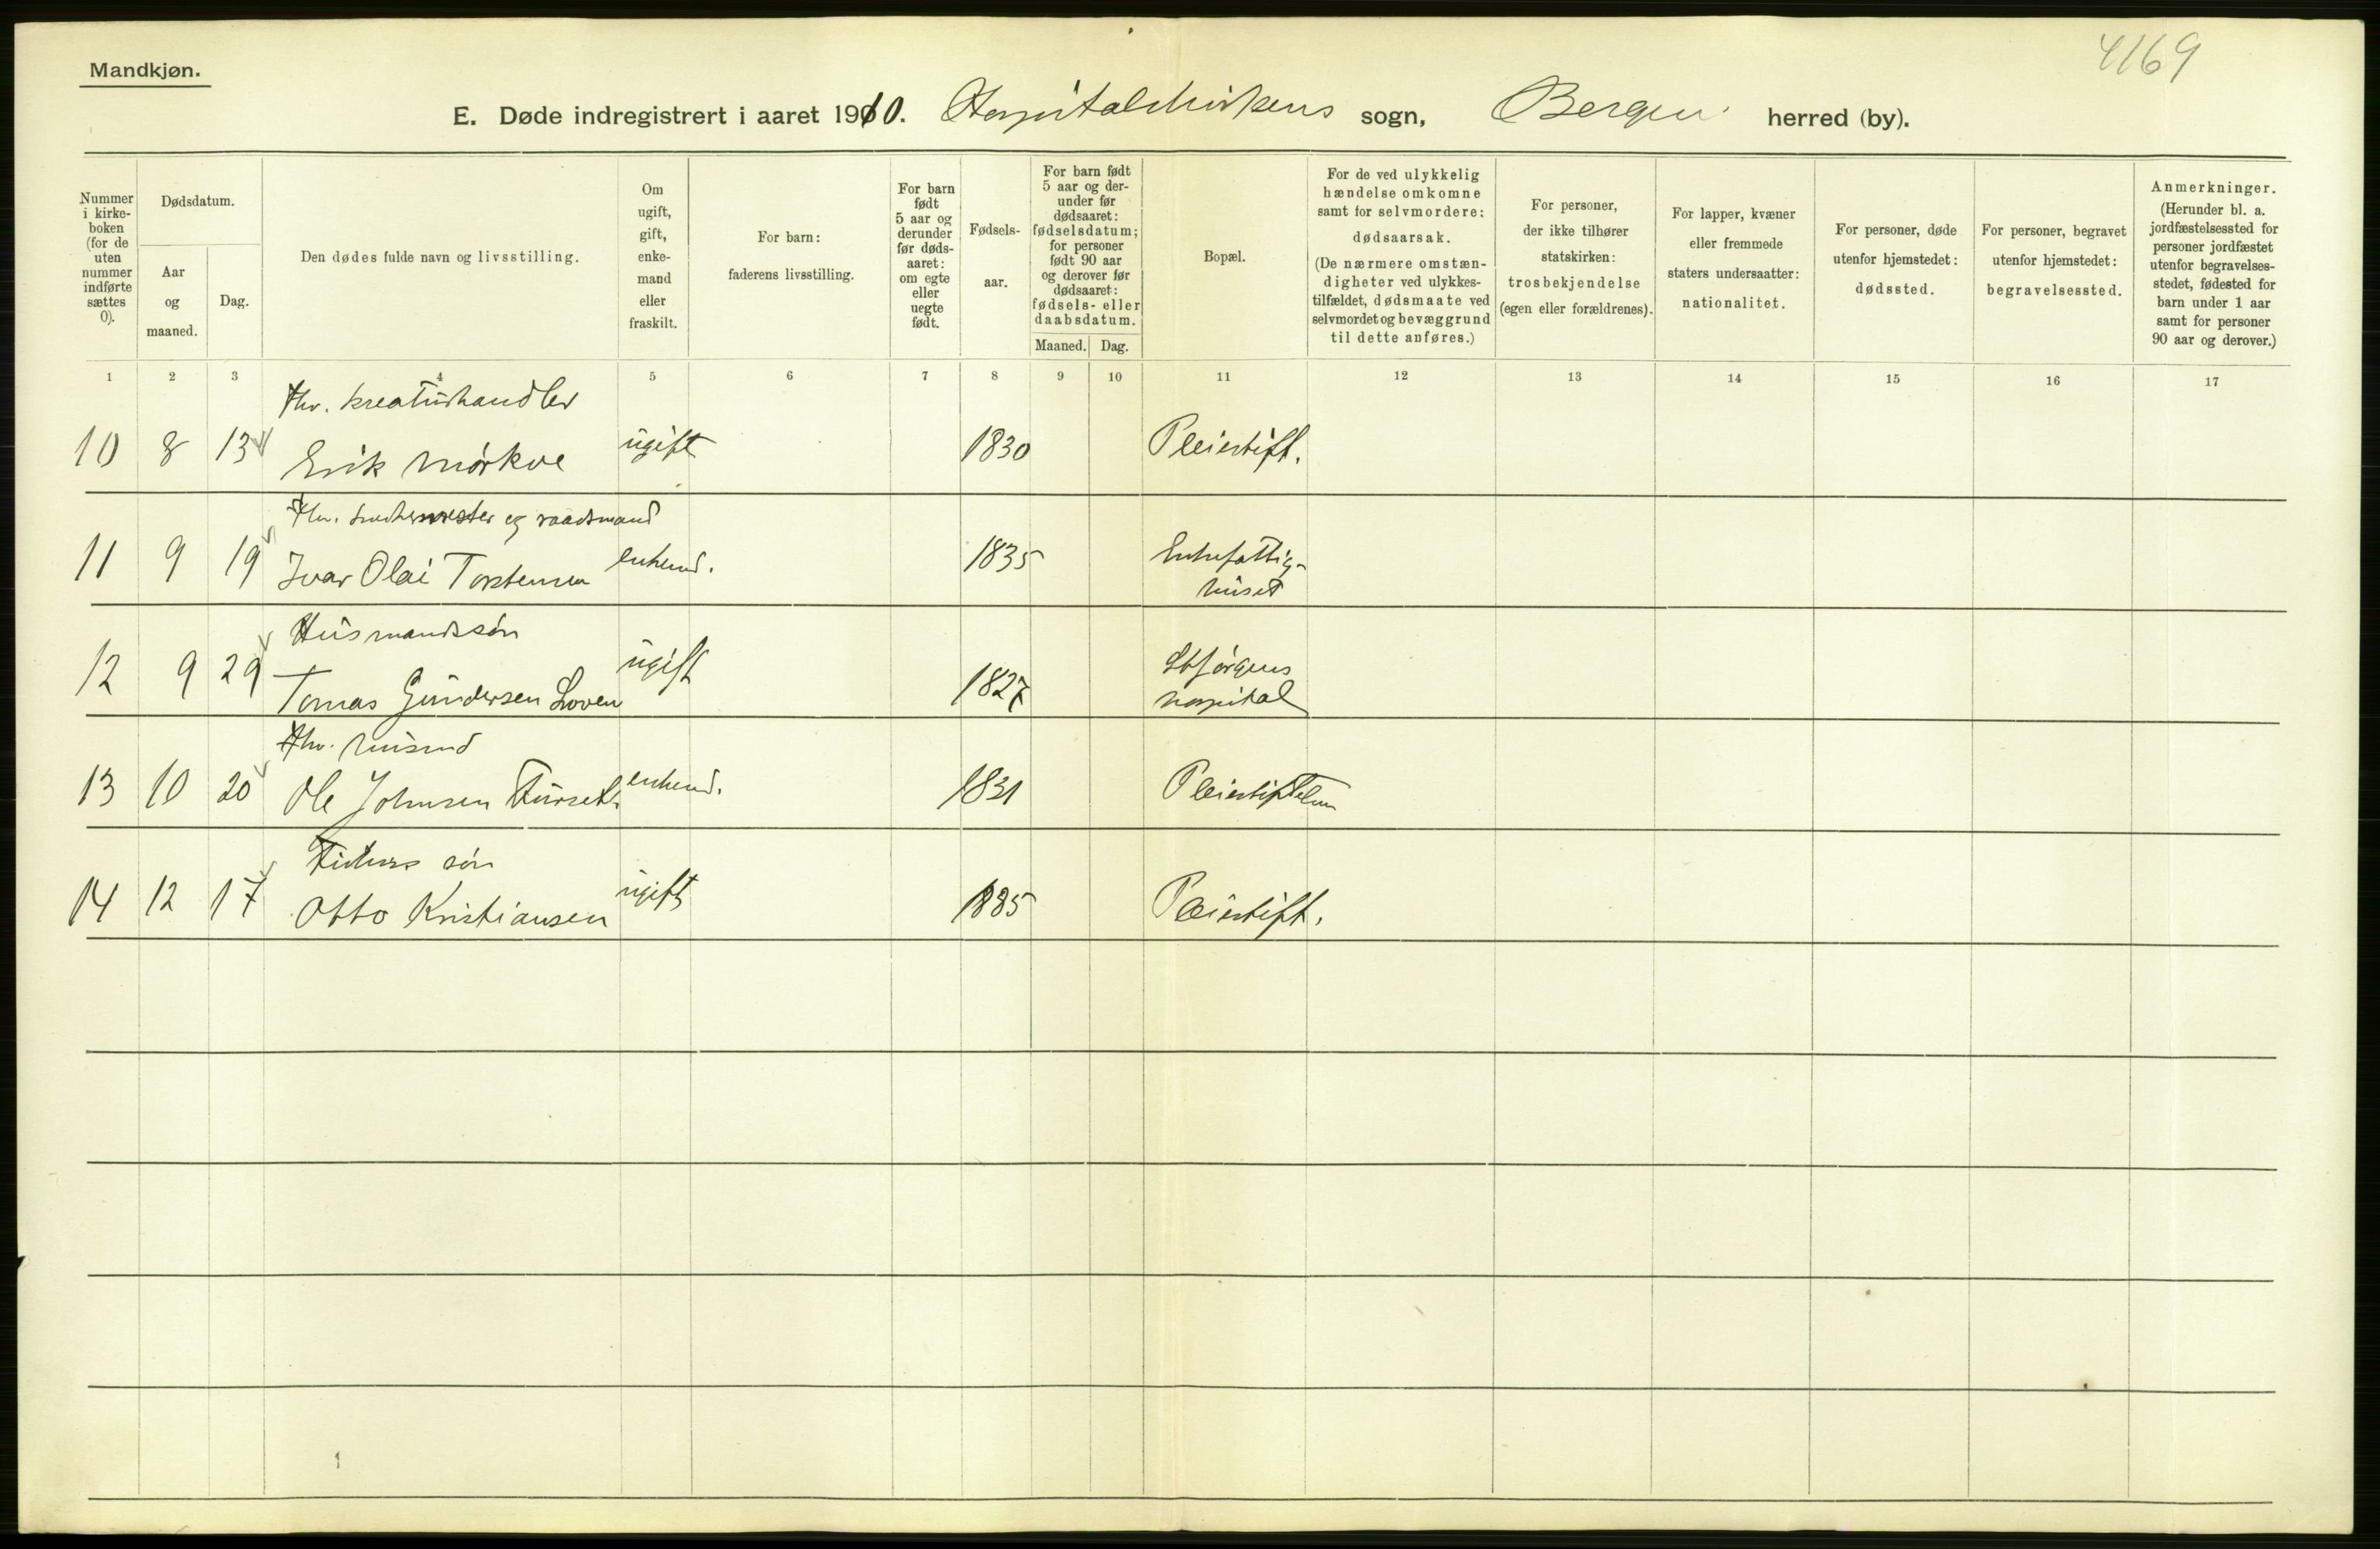 4169
Mandkjøn.
E. Døde indregistrert i aaret 1910. Hospitalskirkens sogn, Bergen herred (by).
Nummer i kirke-boken (for de uten nummer indførte sættes 0).
Dødsdatum.
Aar og maaned.
Dag.
Den dødes fulde navn og livsstilling.
Om ugift, gift, enke-mand eller fraskilt.
For barn: faderens livsstilling.
For barn født 5 aar og derunder før døds-aaret: om egte eller uegte født.
Fødsels-aar.
For barn født 5 aar og der-under før dødsaaret: fødselsdatum; for personer født 90 aar og derover før dødsaaret: fødsels- eller daabsdatum.
Maaned. Dag.
Bopæl.
For de ved ulykkelig hændelse omkomne samt for selvmordere: dødsaarsak. (De nærmere omstæn-digheter ved ulykkes-tilfældet, dødsmaate ved selvmordet og bevæggrund til dette anføres.)
For personer, der ikke tilhører statskirken: trosbekjendelse (egen eller forældrenes).
For lapper, kvæner eller fremmede staters undersaatter: nationalitet.
For personer, døde utenfor hjemstedet: dødssted.
For personer, begravet utenfor hjemstedet: begravelsessted.
Anmerkninger. (Herunder bl. a. jordfæstelsessted for personer jordfæstet utenfor begravelses-stedet, fødested for barn under 1 aar samt for personer 90 aar og derover.)
1 2 3 4 5 6 7 8 9 10 11 12 13 14 15 16 17
fhv. kreaturhandler
10 8 13 Erik Mørkve ugift 1830 Pleiestift.
fhv. og raadsmand
11 9 19 Ivar Olai Torstensen enkemd. 1835 Enkefattig-
huset
Husmandssøn
12 9 29 Tomas Gundersen Loven ugift 1827 St Jørgens
hospital
fhv. husmd
13 10 20 Ole Johnsen Furseth enkemd. 1831 Pleiestiftelsen
Fiskers søn
14 12 17 Otto Kristiansen ugift 1885 Pleiestift.